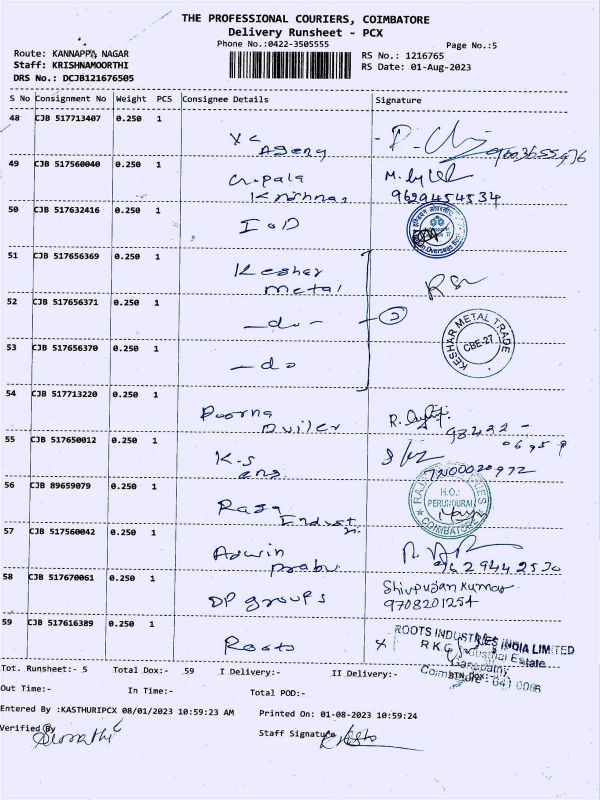 THE PROFESSIONAL COURIERS, COIMBATORE
Delivery Runsheet - PCX
Phone No.:0422-3505555
Page No.:5
Route: KANNAPPA NAGAR
Staff: KRISHNAMOORTHI
DRS No.: DCJB121676505
RS No.: 1216765
RS Date: 01-Aug-2023
S No Consignment No Weight PCS Consignee Details Signature
48 CJB 517713407 0.250 1
49 CJB 517560040 0.250 1 Gopala
Krishnan 9629454534
50 CJB 517632416 0.250 1 IOD
51 CJB 517656369 0.250 1 Keshar
Metal
52 CJB 517656371 0.250 1 -do-
KESHAR METAL TRADE
CBE-27
53 CJB 517656370 0.250 1 -do
54 CJB 517713220 0.250 1 Poorna
55 CJB 517650012 0.250 1 K.S
56 CJB 89659079 0.250 1 Raja
H.O.:
PERUNDURAI
COIMBATORE
57 CJB 517560042 0.250 1 Aswin
Prabu
58 CJB 517670061 0.250 1 DP groups Shivpujan Kumar
9708201254
59 CJB 517616389 0.250 1 Roots
ROOTS INDUSTRIES INDIA LIMITED
R K G Industrial Estate
Ganapathy
Coimbatore - 641 006
Tot. Runsheet:- 5 Total Dox:- 59 I Delivery:- II Delivery:- BTN Dox:-
Out Time:- In Time:- Total POD:-
Entered By :KASTHURIPCX 08/01/2023 10:59:23 AM Printed On: 01-08-2023 10:59:24
Verified By Staff Signature